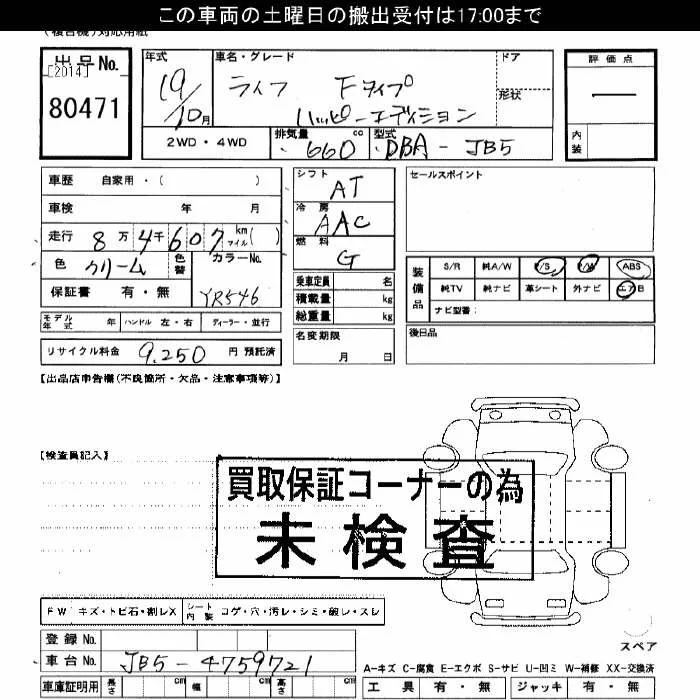 この車両の土曜日の搬出受付は17:00まで
(複合機)対応用紙
出品No.
[2014]
80471
年式
19/10月
車名・グレード
ライフ Fタイプ
ハッピーエディション
ドア
形状
評価点
内装
2WD・4WD
排気量 660 cc
型式 DBA-JB5
車歴 自家用・( )
車検 年 月
走行 8万4千607 km マイル( )
色 クリーム 色替 カラーNo.
YR546
保証書 有・無
モデル年式 年 ハンドル 左・右 ディーラー・並行
リサイクル料金 9,250 円 預託済
シフト AT
冷房 AAC
燃料 G
乗車定員 名
積載量 kg
総重量 kg
名変期限
月 日
セールスポイント
装備品
S/R 純A/W P/S P/W ABS
純TV 純ナビ 革シート 外ナビ エアB
ナビ型番:
後日品
【出品店申告欄(不良箇所・欠品・注意事項等)】
【検査員記入】
買取保証コーナーの為
未検査
FW キズ・トビ石・割レX シート内装 コゲ・穴・汚レ・シミ・破レ・スレ
登録No.
車台No. JB5-4759721
車庫証明用 長さ cm 幅 cm 高さ cm
スペア
A-キズ C-腐食 E-エクボ S-サビ U-凹ミ W-補修 XX-交換済
工具 有・無 ジャッキ 有・無